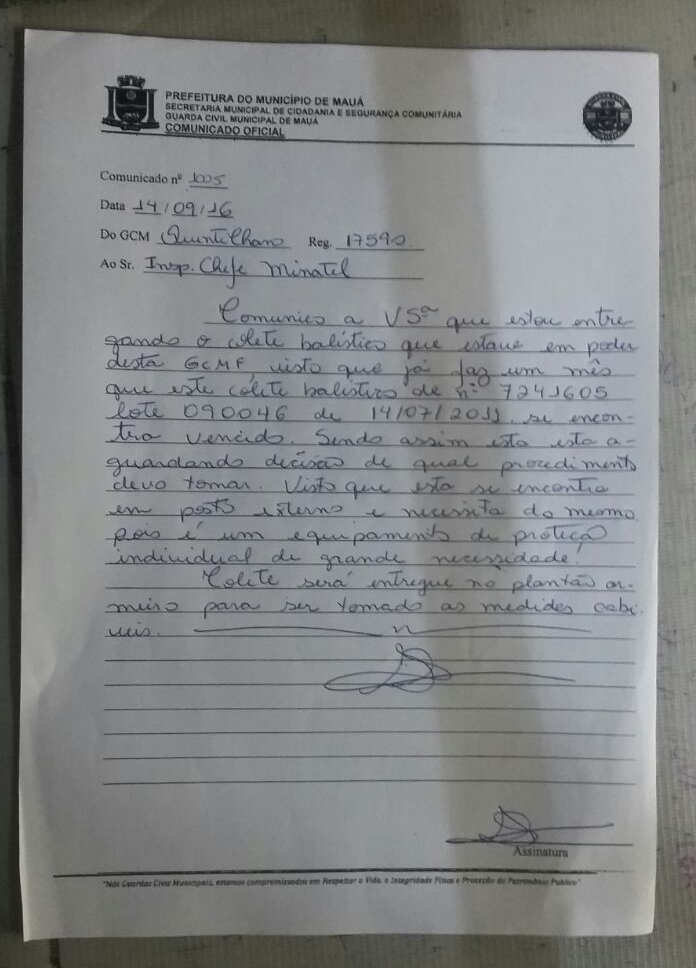 PREFEITURA DO MUNICÍPIO DE MAUÁ
SECRETARIA MUNICIPAL DE CIDADANIA E SEGURANÇA COMUNITÁRIA
GUARDA CIVIL MUNICIPAL DE MAUÁ
COMUNICADO OFICIAL
Comunicado nº 1005
Data 14/09/16
Do GCM Quintelhano Reg. 17590
Ao Sr. Insp. Chefe Minatel
Comunico a VSª que estou entre-
gando o colete balístico que estava em poder
desta GCMF, visto que já faz um mês
que este colete balístico de nº 7241605
lote 090046 de 14/07/2011 se encon-
tra vencido. Sendo assim esta esta a-
guardando decisão de qual procedimento
devo tomar. Visto que esta se encontra
em posto externo e necessita do mesmo
pois é um equipamento de proteça
individual de grande necessidade.
Colete será entregue no plantão ar-
meiro para ser tomado as medides cabi-
veis.
Assinatura
"Nós Guardas Civis Municipais, estamos compromissados em Respeitar a Vida, a Integridade Física e Proteção do Patrimônio Público"